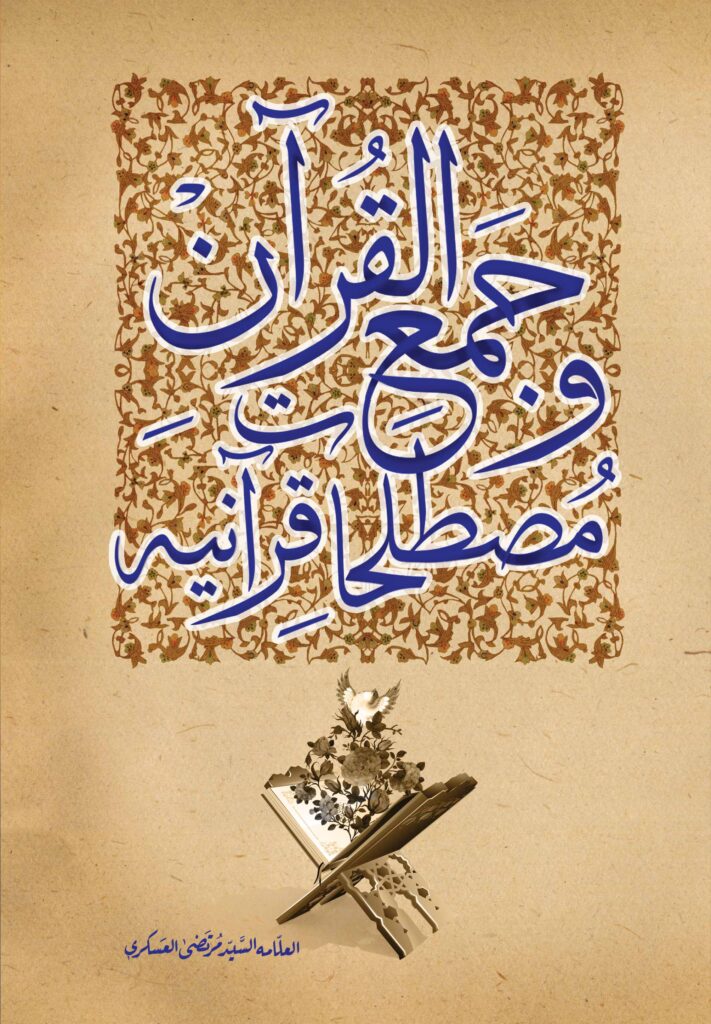 جَمعَ القُرآنْ
و مُصطلحات قِرآنیهِ
العلّامه السَّیّد مُرتَضیٰ العَسکري